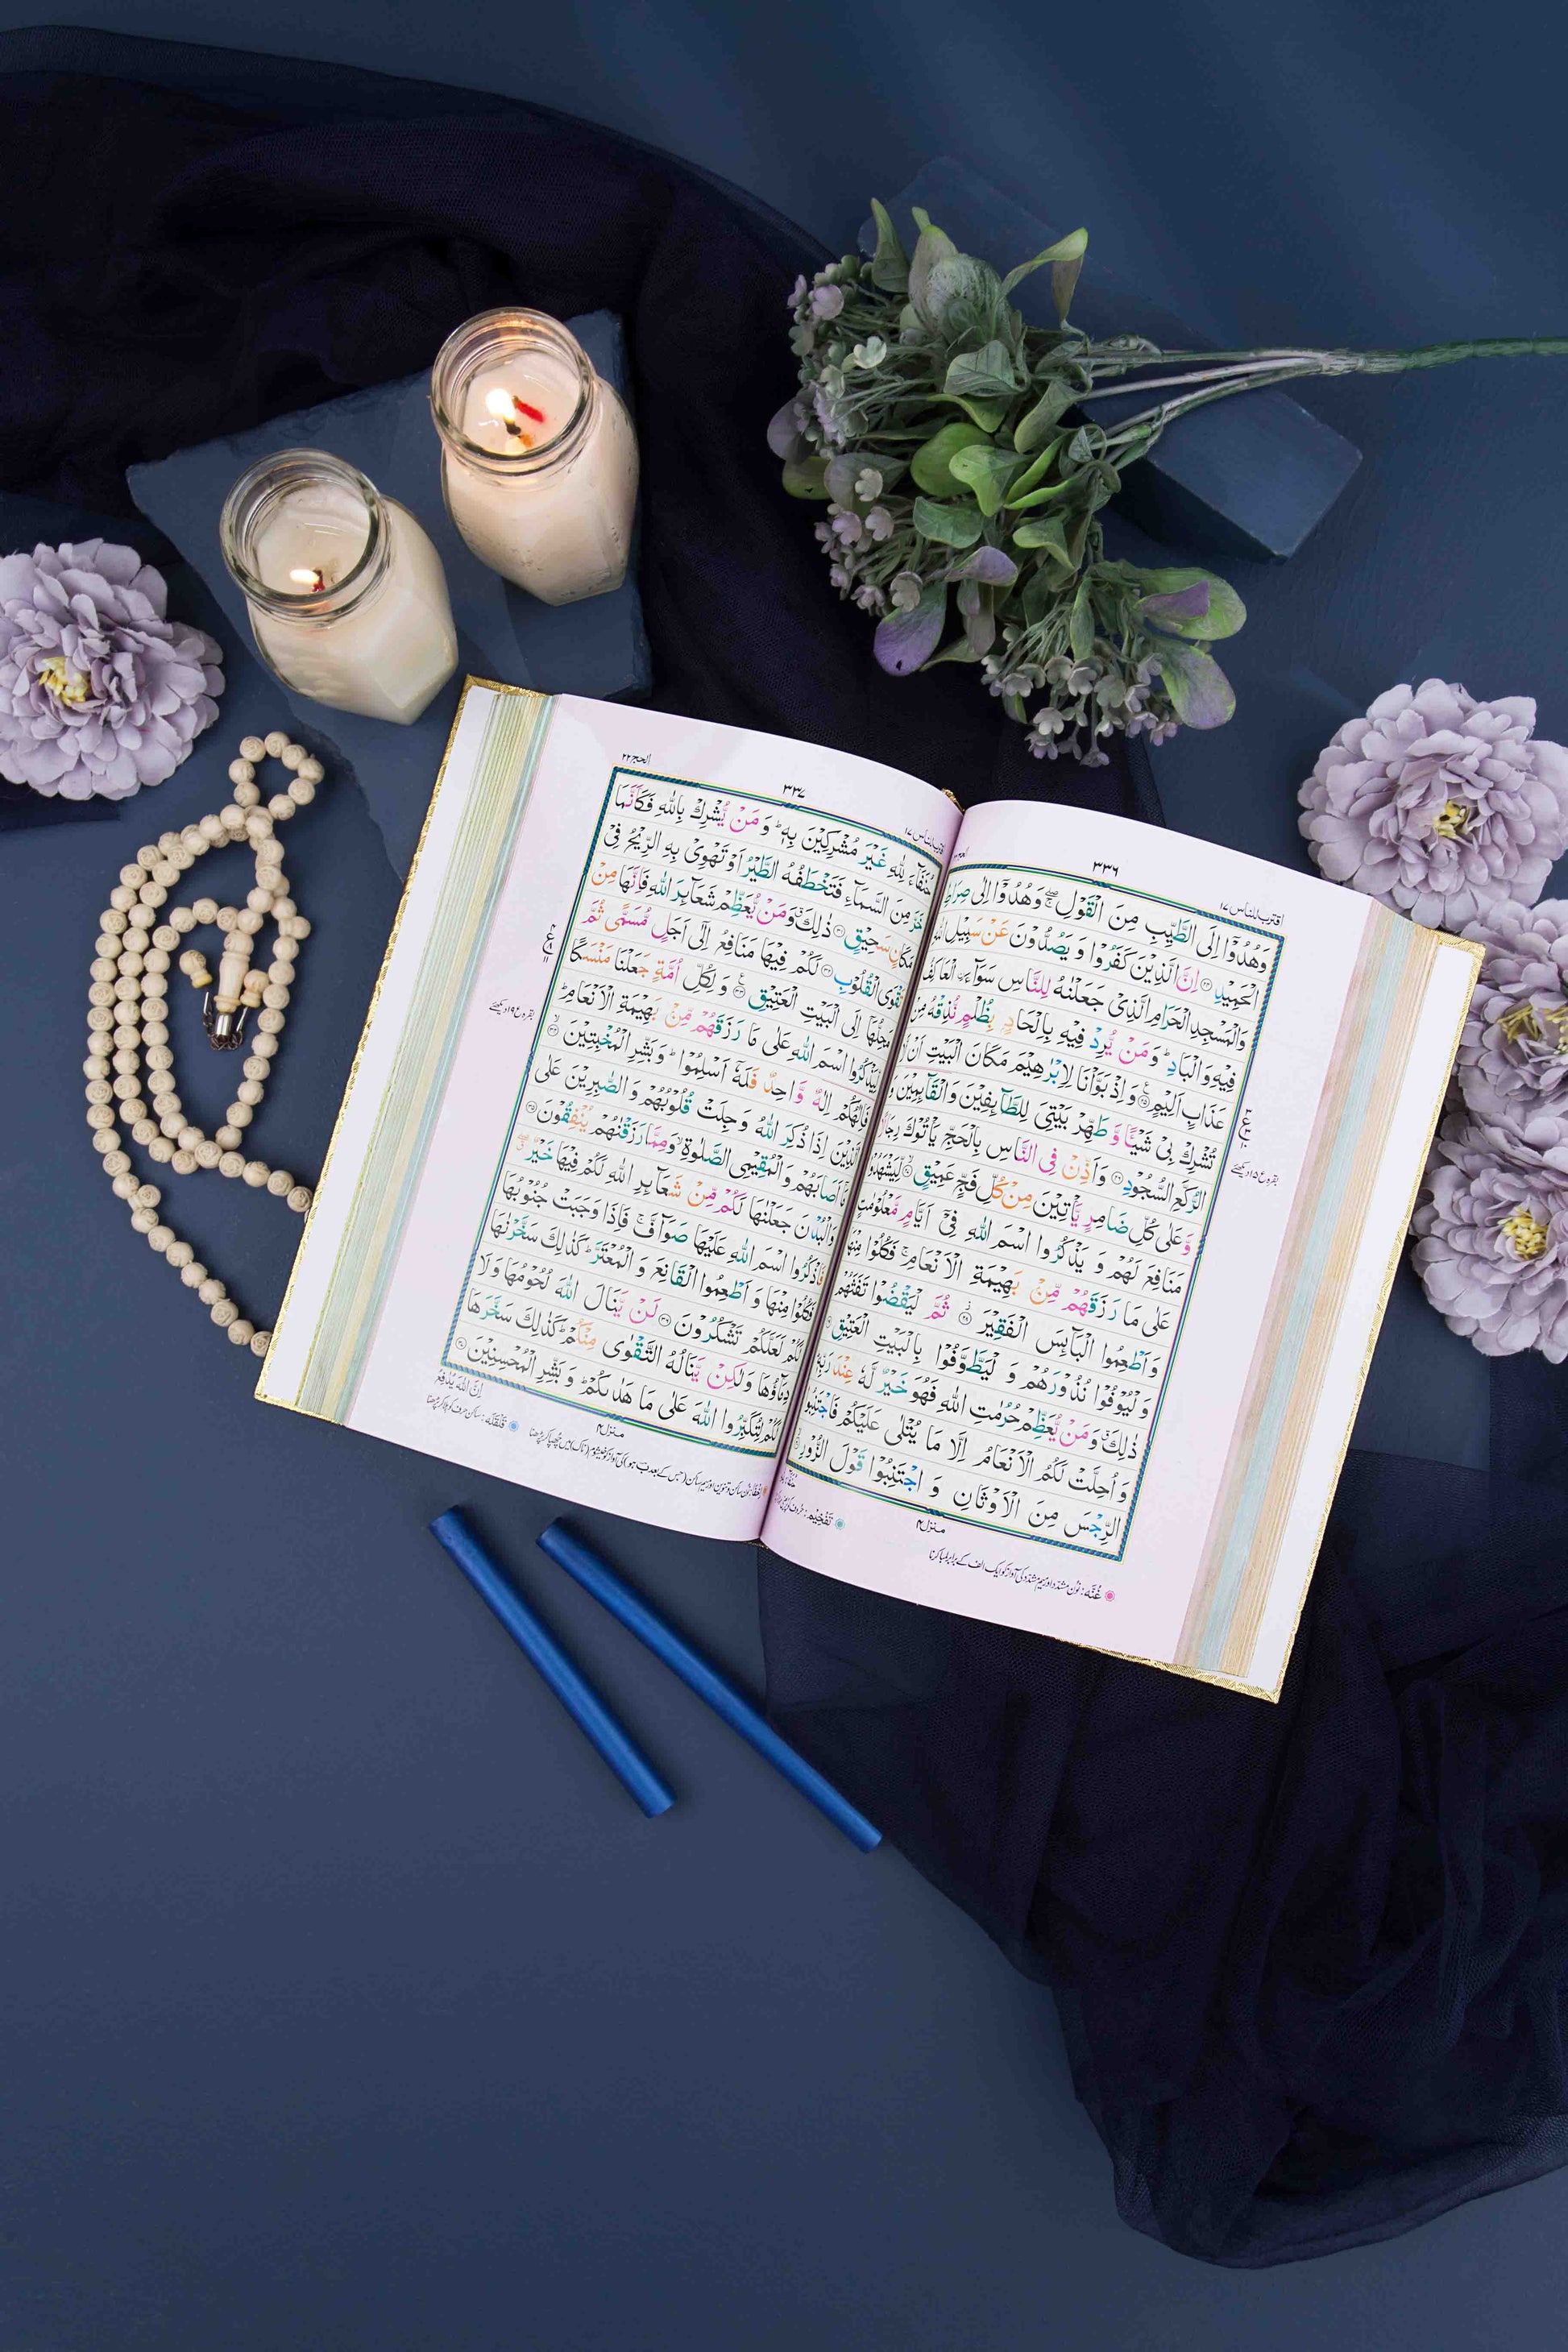 اقترب للناس ١٧
٣٣٦
وَهُدُوْۤا اِلَى الطَّيِّبِ مِنَ الْقَوْلِ ۖۚ وَهُدُوْۤا اِلٰى صِرَاطِ
الْحَمِيْدِ ﴿٢٤﴾ اِنَّ الَّذِيْنَ كَفَرُوْا وَ يَصُدُّوْنَ عَنْ سَبِيْلِ اللّٰهِ
وَالْمَسْجِدِ الْحَرَامِ الَّذِىْ جَعَلْنٰهُ لِلنَّاسِ سَوَآءَ ۨالْعَاكِفُ
فِيْهِ وَالْبَادِ ؕ وَمَنْ يُّرِدْ فِيْهِ بِاِلْحَادٍۭ بِظُلْمٍ نُّذِقْهُ مِنْ
عَذَابٍ اَلِيْمٍ ﴿٢٥﴾ وَاِذْ بَوَّاْنَا لِاِبْرٰهِيْمَ مَكَانَ الْبَيْتِ اَنْ لَّا
تُشْرِكْ بِىْ شَيْـًٔا وَّطَهِّرْ بَيْتِىَ لِلطَّآئِفِيْنَ وَالْقَآئِمِيْنَ وَ
الرُّكَّعِ السُّجُوْدِ ﴿٢٦﴾ وَاَذِّنْ فِى النَّاسِ بِالْحَجِّ يَاْتُوْكَ رِجَالًا
وَّعَلٰى كُلِّ ضَامِرٍ يَّاْتِيْنَ مِنْ كُلِّ فَجٍّ عَمِيْقٍ ﴿٢٧﴾ لِّيَشْهَدُوْا
مَنَافِعَ لَهُمْ وَ يَذْكُرُوا اسْمَ اللّٰهِ فِىْۤ اَيَّامٍ مَّعْلُوْمٰتٍ
عَلٰى مَا رَزَقَهُمْ مِّنْۢ بَهِيْمَةِ الْاَنْعَامِ ۚ فَكُلُوْا مِنْهَا
وَ اَطْعِمُوا الْبَآئِسَ الْفَقِيْرَ ﴿٢٨﴾ ثُمَّ لْيَقْضُوْا تَفَثَهُمْ
وَ لْيُوْفُوْا نُذُوْرَهُمْ وَ لْيَطَّوَّفُوْا بِالْبَيْتِ الْعَتِيْقِ ﴿٢٩﴾
ذٰلِكَ ۗ وَمَنْ يُّعَظِّمْ حُرُمٰتِ اللّٰهِ فَهُوَ خَيْرٌ لَّهٗ عِنْدَ رَبِّهٖ ؕ
وَ اُحِلَّتْ لَكُمُ الْاَنْعَامُ اِلَّا مَا يُتْلٰى عَلَيْكُمْ فَاجْتَنِبُوا
الرِّجْسَ مِنَ الْاَوْثَانِ وَ اجْتَنِبُوْا قَوْلَ الزُّوْرِ ﴿٣٠﴾
منزل ٤
غُنّه : نون مشدد اور میم مشدد کی آواز کو ایک الف کے برابر لمبا کرنا
اقترب للناس ١٧
٣٣٧
الحج ٢٢
حُنَفَآءَ لِلّٰهِ غَيْرَ مُشْرِكِيْنَ بِهٖ ؕ وَ مَنْ يُّشْرِكْ بِاللّٰهِ فَكَاَنَّمَا
خَرَّ مِنَ السَّمَآءِ فَتَخْطَفُهُ الطَّيْرُ اَوْ تَهْوِىْ بِهِ الرِّيْحُ فِىْ
مَكَانٍ سَحِيْقٍ ﴿٣١﴾ ذٰلِكَ ۗ وَمَنْ يُّعَظِّمْ شَعَآئِرَ اللّٰهِ فَاِنَّهَا مِنْ
تَقْوَى الْقُلُوْبِ ﴿٣٢﴾ لَكُمْ فِيْهَا مَنَافِعُ اِلٰٓى اَجَلٍ مُّسَمًّى ثُمَّ
مَحِلُّهَاۤ اِلَى الْبَيْتِ الْعَتِيْقِ ﴿٣٣﴾ وَ لِكُلِّ اُمَّةٍ جَعَلْنَا مَنْسَكًا
لِّيَذْكُرُوا اسْمَ اللّٰهِ عَلٰى مَا رَزَقَهُمْ مِّنْۢ بَهِيْمَةِ الْاَنْعَامِ ؕ
فَاِلٰهُكُمْ اِلٰهٌ وَّاحِدٌ فَلَهٗۤ اَسْلِمُوْا ؕ وَ بَشِّرِ الْمُخْبِتِيْنَ ﴿٣٤﴾
الَّذِيْنَ اِذَا ذُكِرَ اللّٰهُ وَجِلَتْ قُلُوْبُهُمْ وَ الصّٰبِرِيْنَ عَلٰى
مَاۤ اَصَابَهُمْ وَالْمُقِيْمِى الصَّلٰوةِ ۙ وَمِمَّا رَزَقْنٰهُمْ يُنْفِقُوْنَ ﴿٣٥﴾
وَالْبُدْنَ جَعَلْنٰهَا لَكُمْ مِّنْ شَعَآئِرِ اللّٰهِ لَكُمْ فِيْهَا خَيْرٌ ۖۗ
فَاذْكُرُوا اسْمَ اللّٰهِ عَلَيْهَا صَوَآفَّ ۚ فَاِذَا وَجَبَتْ جُنُوْبُهَا
فَكُلُوْا مِنْهَا وَ اَطْعِمُوا الْقَانِعَ وَ الْمُعْتَرَّ ؕ كَذٰلِكَ سَخَّرْنٰهَا
لَكُمْ لَعَلَّكُمْ تَشْكُرُوْنَ ﴿٣٦﴾ لَنْ يَّنَالَ اللّٰهَ لُحُوْمُهَا وَ لَا
دِمَآؤُهَا وَ لٰكِنْ يَّنَالُهُ التَّقْوٰى مِنْكُمْ ؕ كَذٰلِكَ سَخَّرَهَا
لَكُمْ لِتُكَبِّرُوا اللّٰهَ عَلٰى مَا هَدٰىكُمْ ؕ وَ بَشِّرِ الْمُحْسِنِيْنَ ﴿٣٧﴾
منزل ٤